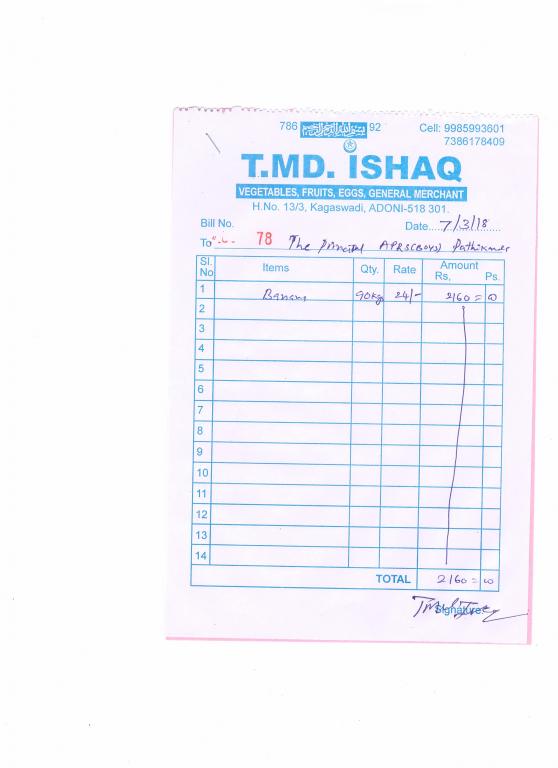 786 92 Cell: 9985993601
7386178409
T.MD. ISHAQ
VEGETABLES, FRUITS, EGGS, GENERAL MERCHANT
H.No. 13/3, Kagaswadi, ADONI-518 301.
Bill No. 78 Date....7/3/18
To The Principal APRS(BOYS)
Sl. No Items Qty. Rate Amount Rs, Ps.
1 Banana 90kg 24/- 2160 = 00
2
3
4
5
6
7
8
9
10
11
12
13
14
TOTAL 2160 = 00
Signature